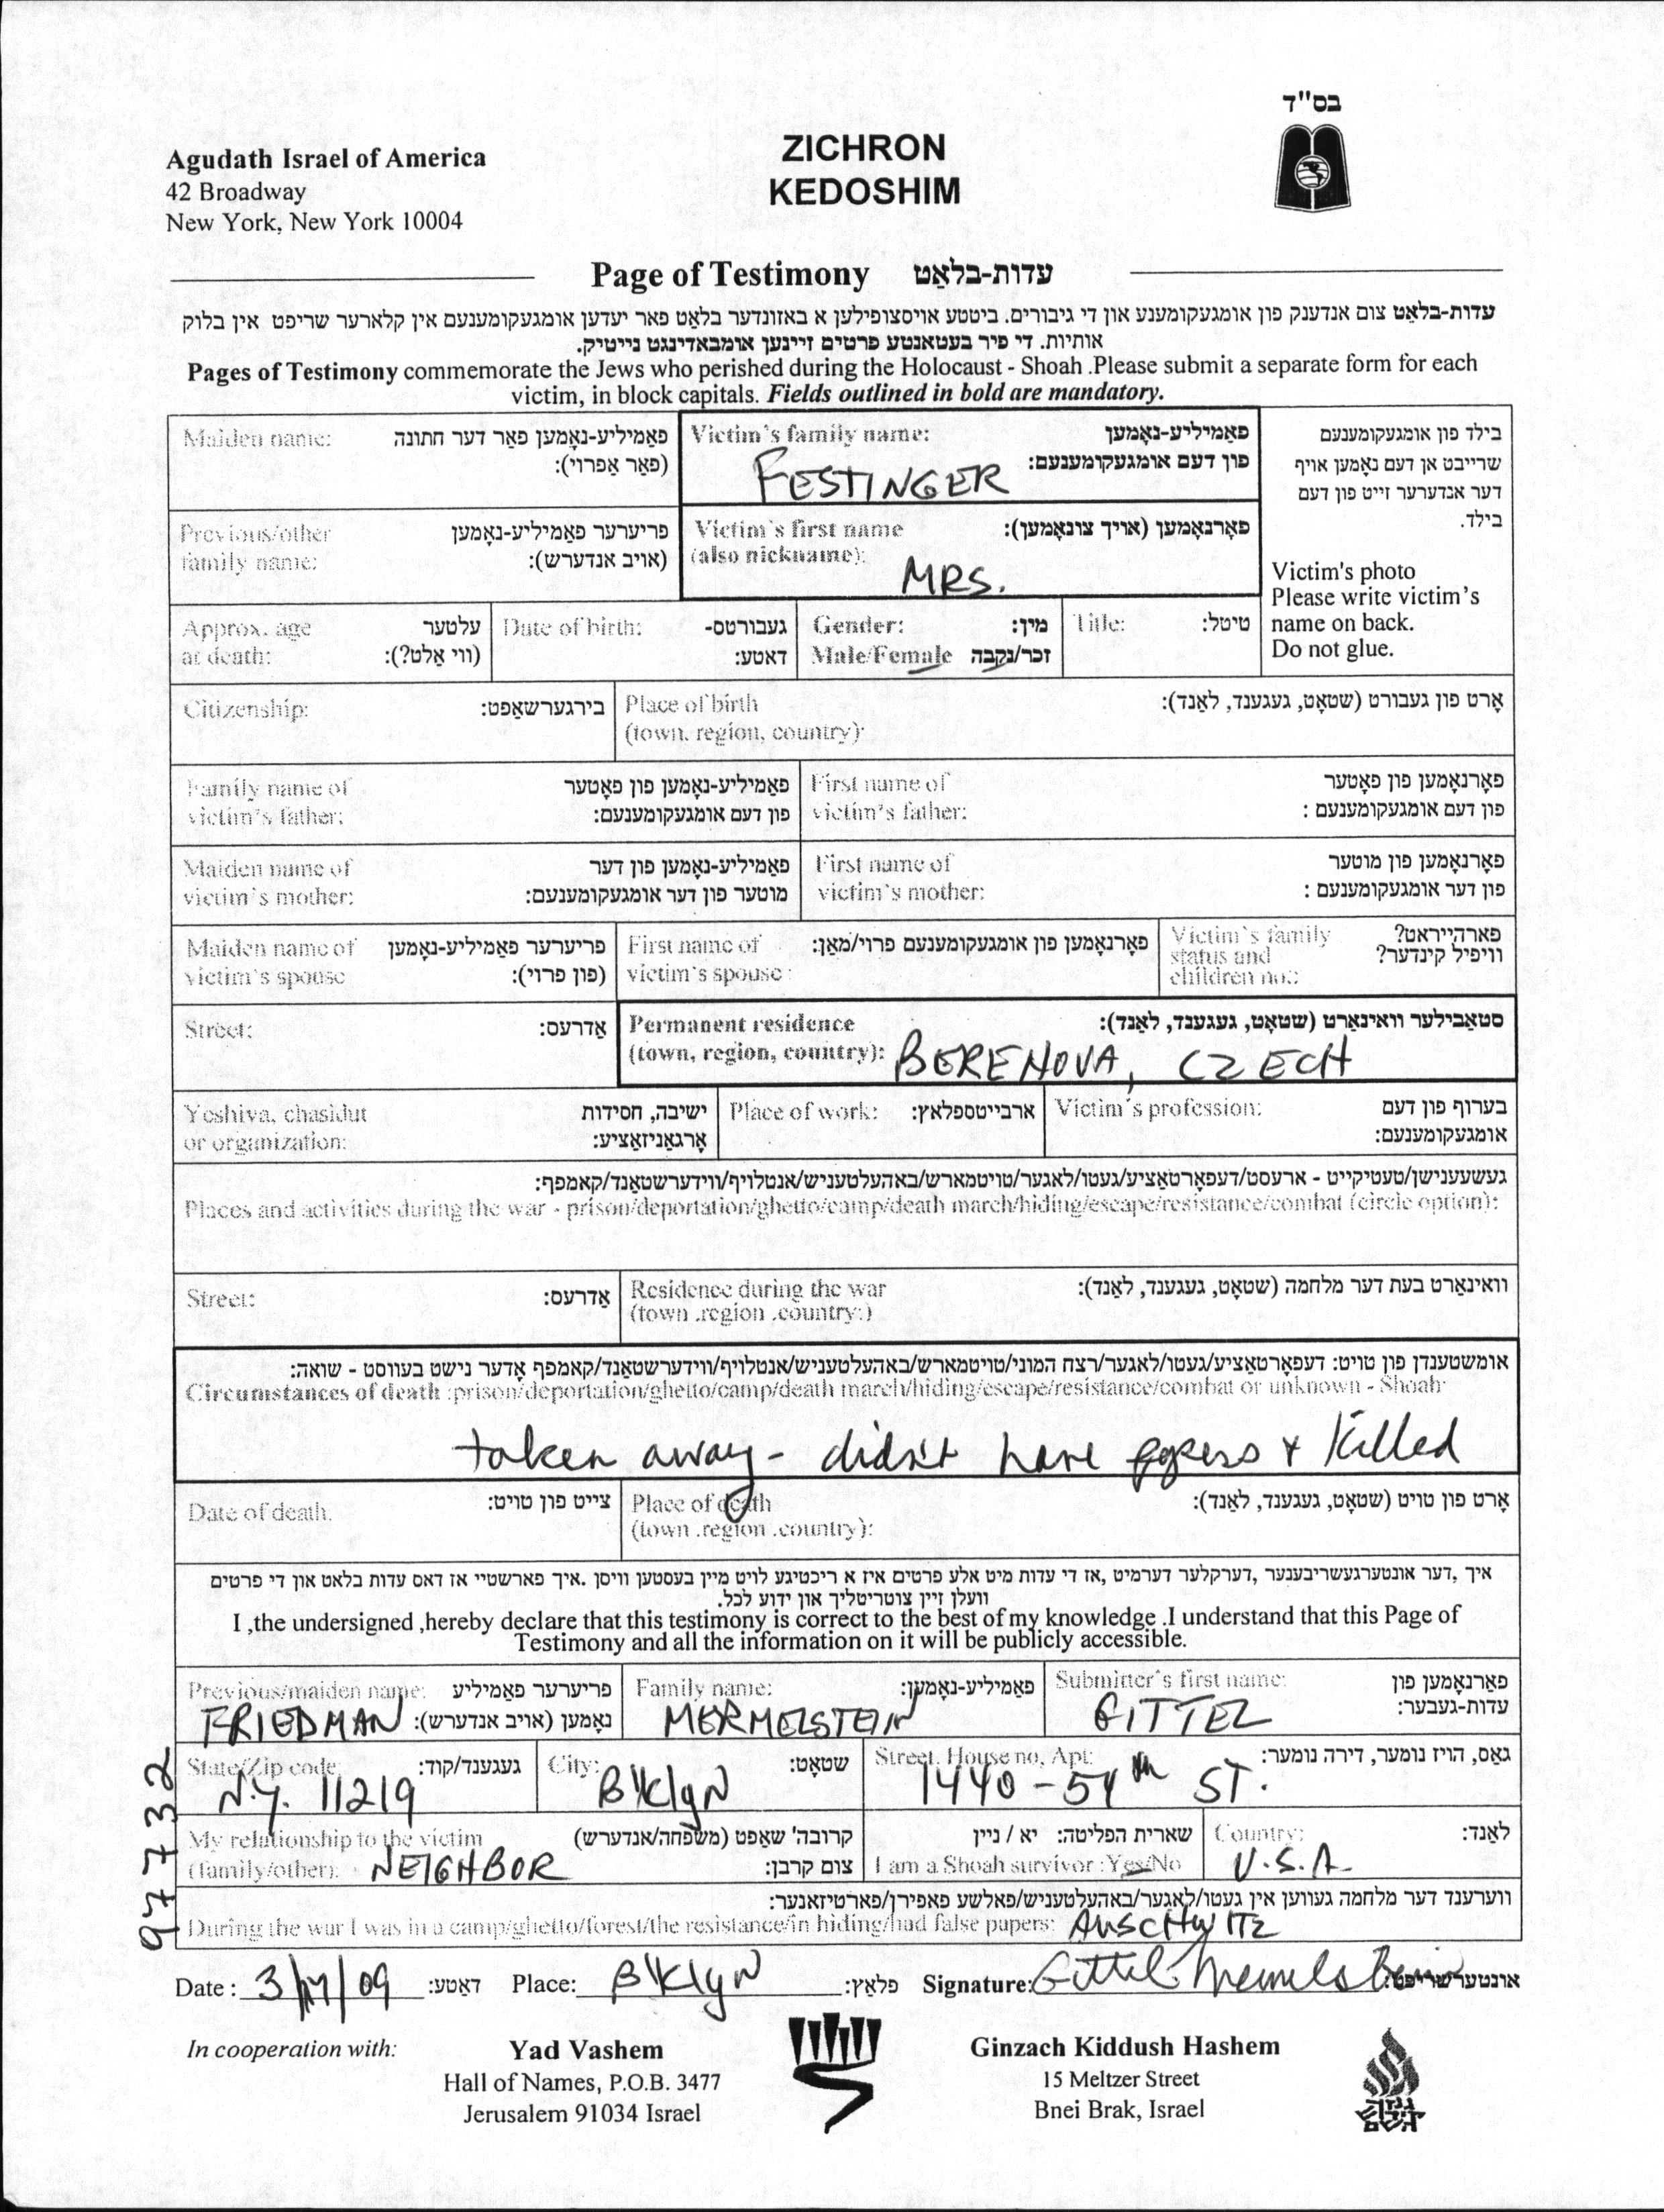 בס"ד
Agudath Israel of America
42 Broadway
New York, New York 10004
ZICHRON
KEDOSHIM
Page of Testimony עדות-בלאַט
עדות-בלאַט צום אנדענק פון אומגעקומענע און די גיבורים. ביטטע אויסצופילען א באזונדער בלאַט פאר יעדען אומגעקומענעם אין קלארער שריפט אין בלוק
אותיות. די פיר בעטאנטע פרטים זיינען אומבאדינגט נייטיק.
Pages of Testimony commemorate the Jews who perished during the Holocaust - Shoah .Please submit a separate form for each
victim, in block capitals. Fields outlined in bold are mandatory.
Maiden name: פאַמיליע-נאָמען פאַר דער חתונה
(פאַר אַפרוי):
Victim's family name: פאַמיליע-נאָמען
פון דעם אומגעקומענעם:
FESTINGER
Previous/other פריערער פאַמיליע-נאָמען
family name: (אויב אנדערש):
Victim's first name פאָרנאָמען (אויך צונאָמען):
(also nickname):
MRS.
בילד פון אומגעקומענעם
שרייבט אן דעם נאָמען אויף
דער אנדערער זייט פון דעם
בילד.
Victim's photo
Please write victim's
name on back.
Do not glue.
Approx. age עלטער
at death: (ווי אַלט?):
Date of birth: געבורטס-
דאטע:
Gender: מין:
Male/Female זכר/נקבה
Title: טיטל:
Citizenship: בירגערשאַפט:
Place of birth אָרט פון געבורט (שטאָט, געגענד, לאַנד):
(town, region, country):
Family name of פאַמיליע-נאָמען פון פאָטער
victim's father: פון דעם אומגעקומענעם:
First name of פאָרנאָמען פון פאָטער
victim's father: פון דעם אומגעקומענעם :
Maiden name of פאַמיליע-נאָמען פון דער
victim's mother: מוטער פון דער אומגעקומענעם:
First name of פאָרנאָמען פון מוטער
victim's mother: פון דער אומגעקומענעם :
Maiden name of פריערער פאַמיליע-נאָמען
victim's spouse (פון פרוי):
First name of פאָרנאָמען פון אומגעקומענעם פרוי/מאַן:
victim's spouse :
Victim's family פארהייראט?
status and וויפיל קינדער?
children no.:
Street: אַדרעס:
Permanent residence סטאַבילער וואינאַרט (שטאָט, געגענד, לאַנד):
(town, region, country): BERENOVA, CZECH
Yeshiva, chasidut ישיבה, חסידות
or organization: אָרגאַניזאַציע:
Place of work: ארבייטספלאץ:
Victim's profession: בערוף פון דעם
אומגעקומענעם:
געשעענישן/טעטיקייט - ארעסט/דעפאָרטאַציע/געטו/לאגער/טויטמארש/באהעלטעניש/אנטלויף/ווידערשטאַנד/קאמפף:
Places and activities during the war - prison/deportation/ghetto/camp/death march/hiding/escape/resistance/combat (circle option):
Street: אַדרעס:
Residence during the war וואינאַרט בעת דער מלחמה (שטאָט, געגענד, לאַנד):
(town .region .country:)
אומשטענדן פון טויט: דעפאָרטאַציע/געטו/לאגער/רצח המוני/טויטמארש/באהעלטעניש/אנטלויף/ווידערשטאַנד/קאמפף אָדער נישט בעווסט - שואה:
Circumstances of death :prison/deportation/ghetto/camp/death march/hiding/escape/resistance/combat or unknown - Shoah:
taken away - didn't have papers & killed
Date of death. צייט פון טויט:
Place of death אָרט פון טויט (שטאָט, געגענד, לאַנד):
(town .region .country):
איך ,דער אונטערגעשריבענער ,דערקלער דערמיט ,אז די עדות מיט אלע פרטים איז א ריכטיגע לויט מיין בעסטען וויסן .איך פארשטיי אז דאס עדות בלאט און די פרטים
וועלן זיין צוטריטליך און ידוע לכל.
I ,the undersigned ,hereby declare that this testimony is correct to the best of my knowledge .I understand that this Page of
Testimony and all the information on it will be publicly accessible.
Previous/maiden name: פריערער פאַמיליע
FRIEDMAN נאָמען (אויב אנדערש):
Family name: פאַמיליע-נאָמען:
MERMELSTEIN
Submitter's first name: פאַרנאָמען פון
עדות-געבער:
GITTEL
State/Zip code: געגענד/קוד:
N.Y. 11219
City: שטאָט:
B'klyN
Street, House no, Apt: גאַס, הויז נומער, דירה נומער:
1440 - 54th ST.
My relationship to the victim קרובה' שאַפט (משפחה/אנדערש)
(family/other): NEIGHBOR צום קרבן:
שארית הפליטה: יא / ניין
I am a Shoah survivor :Yes/No
Country: לאַנד:
U.S.A.
ווערענד דער מלחמה געווען אין געטו/לאַגער/באהעלטעניש/פאלשע פאפירן/פארטיזאנער:
During the war I was in a camp/ghetto/forest/the resistance/in hiding/had false papers: AUSCHWITZ
977732
Date : 3/17/09 דאטע: Place: B'klyN פלאַץ: Signature: Gittel Mermelstein אונטערשריפט:
In cooperation with:
Yad Vashem
Hall of Names, P.O.B. 3477
Jerusalem 91034 Israel
Ginzach Kiddush Hashem
15 Meltzer Street
Bnei Brak, Israel